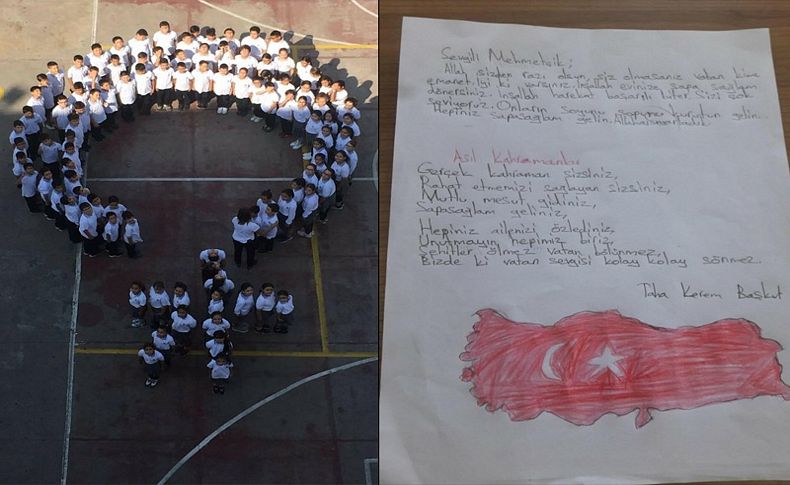 Sevgili Mehmetcik;
Allah sizden razı olsun, siz olmasanız vatan kime
emanet. İyi ki varsınız. İnşallah evinize sapa sağlam
dönersiniz. İnşallah harekat başarılı biter. Sizi çok
seviyoruz. Onların soyunu kurutun gelin.
Hepiniz sapasağlam gelin. Allahaısmarladık.
Asıl Kahramanlar
Gerçek kahraman sizsiniz,
Rahat etmemizi sağlayan sizsiniz,
Mutlu mesut gidiniz,
Sapasağlam geliniz,
Hepiniz ailenizi özlediniz,
Unutmayın hepimiz biriz,
Şehitler ölmez vatan bölünmez,
Bizde ki vatan sevgisi kolay kolay sönmez.
Taha Kerem Başkut